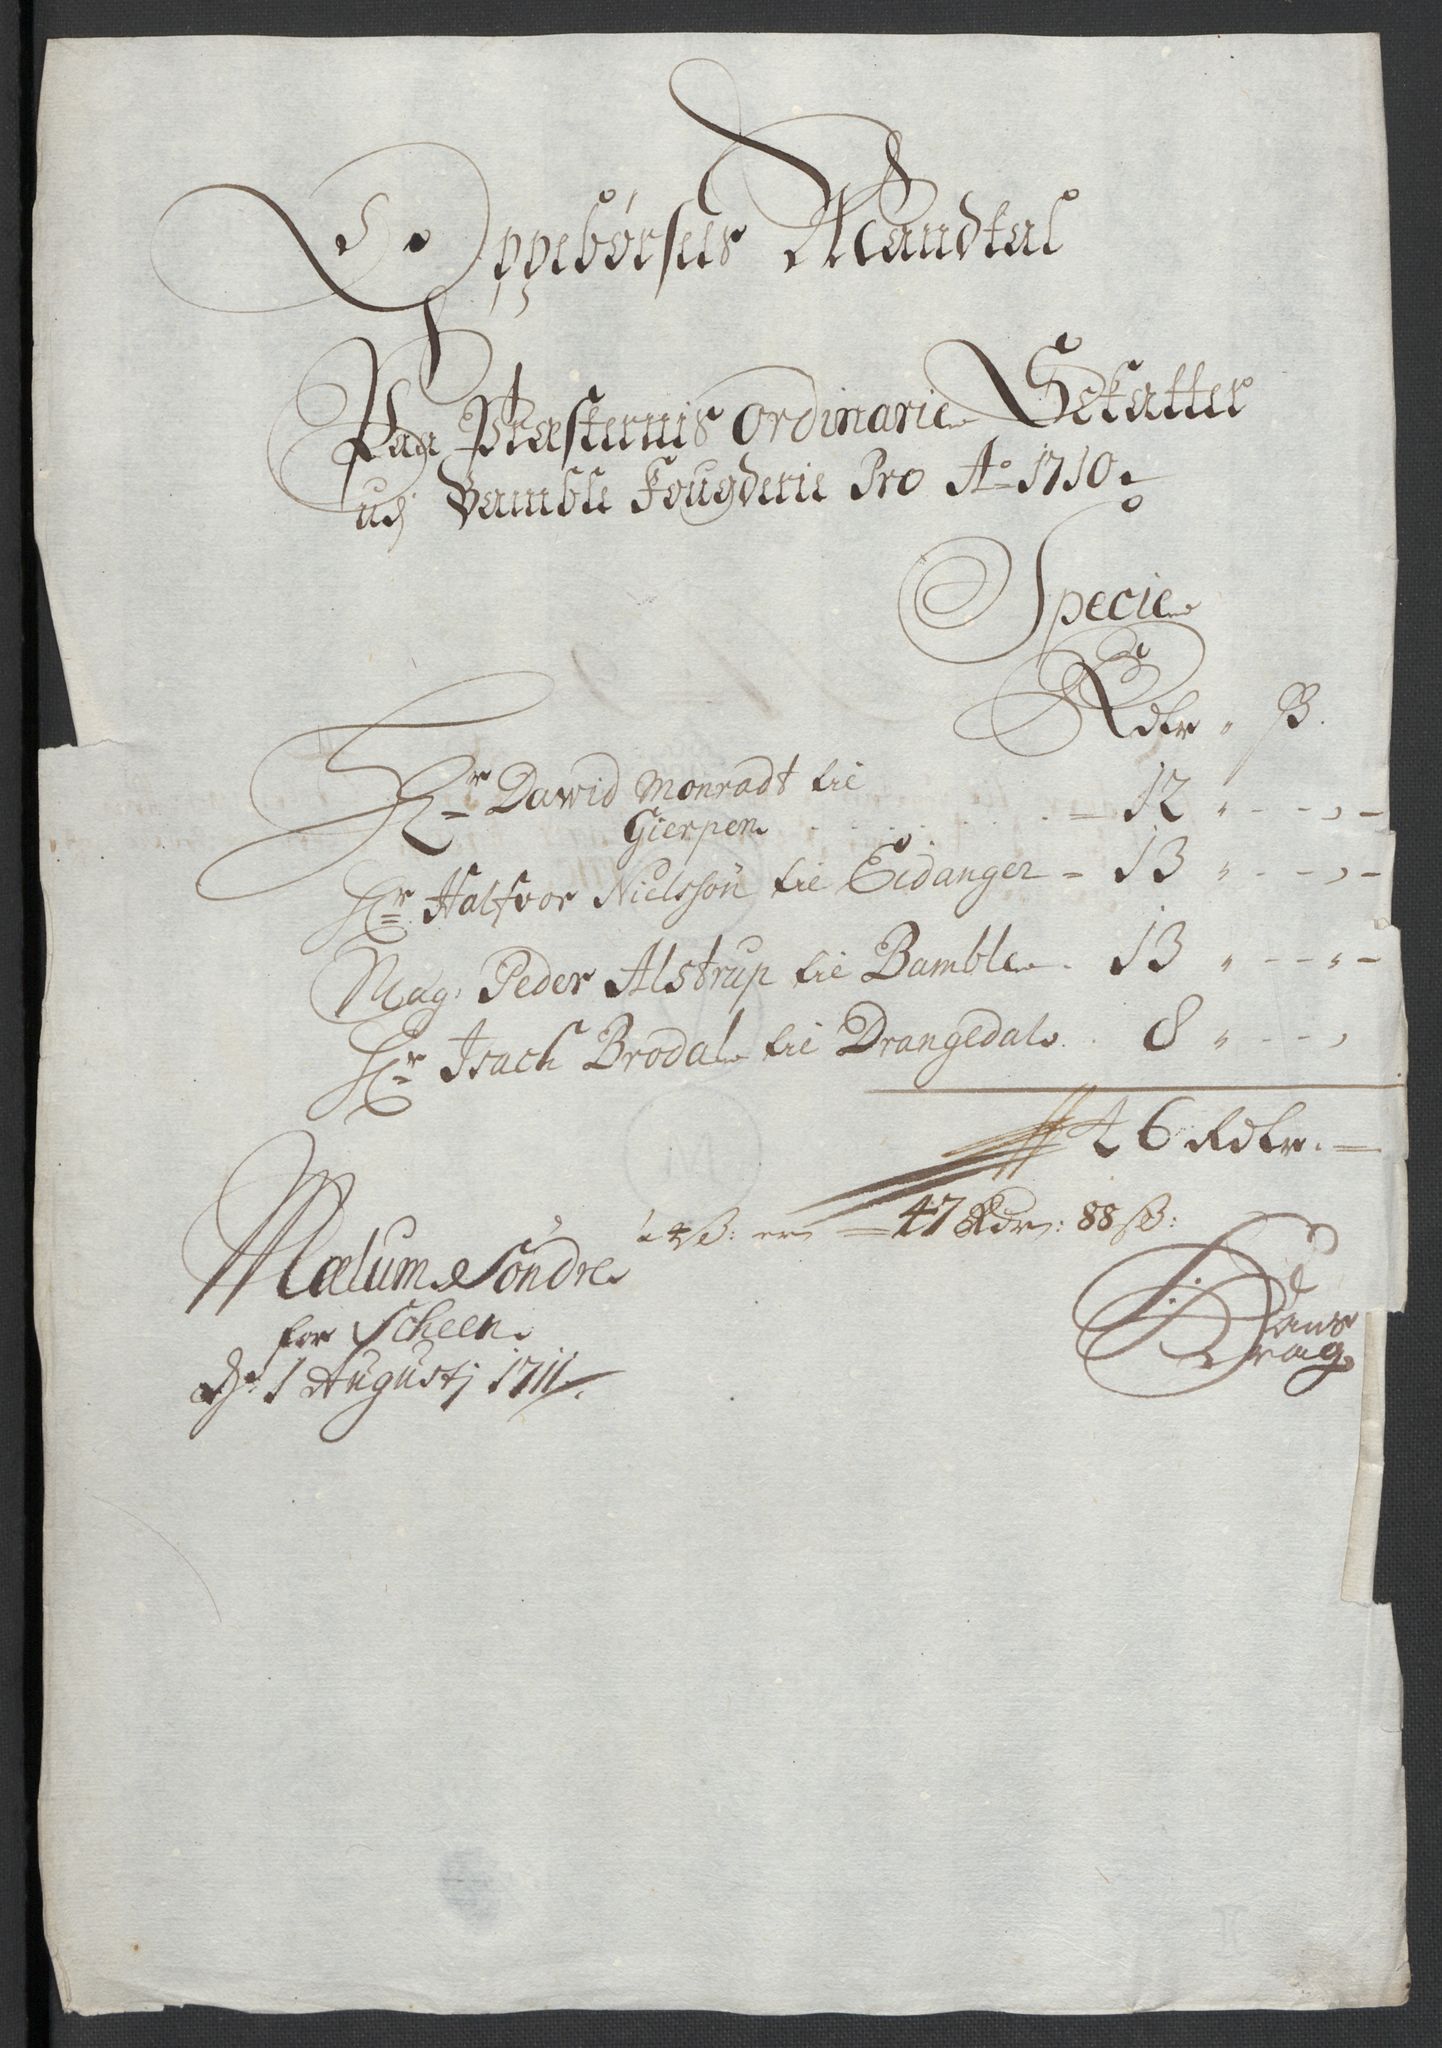 Oppebørsels Mandtal
Paa Præsternis ordinarie Schatter
udj Bamble Fougderie Pro Ao 1710.
Specie
Rdlr " ß.
Hr Dawid Monradt til
Gierpen. - 12 " - - , -
Hr Halfvor Nielssøn til Eidanger - 13 " - - , -
Mag: Peder Alstrup til Bamble. 13 " - - " -
Hr Isach Brodal til Drangedal. . 8 " - - ,
46 Rdlr. -
à 4 ß: er = 47 Rdr: 88 ß:
Mælum Søndre
for Scheen.
dn 1 Augustj 1711.
Hans
Drag
M